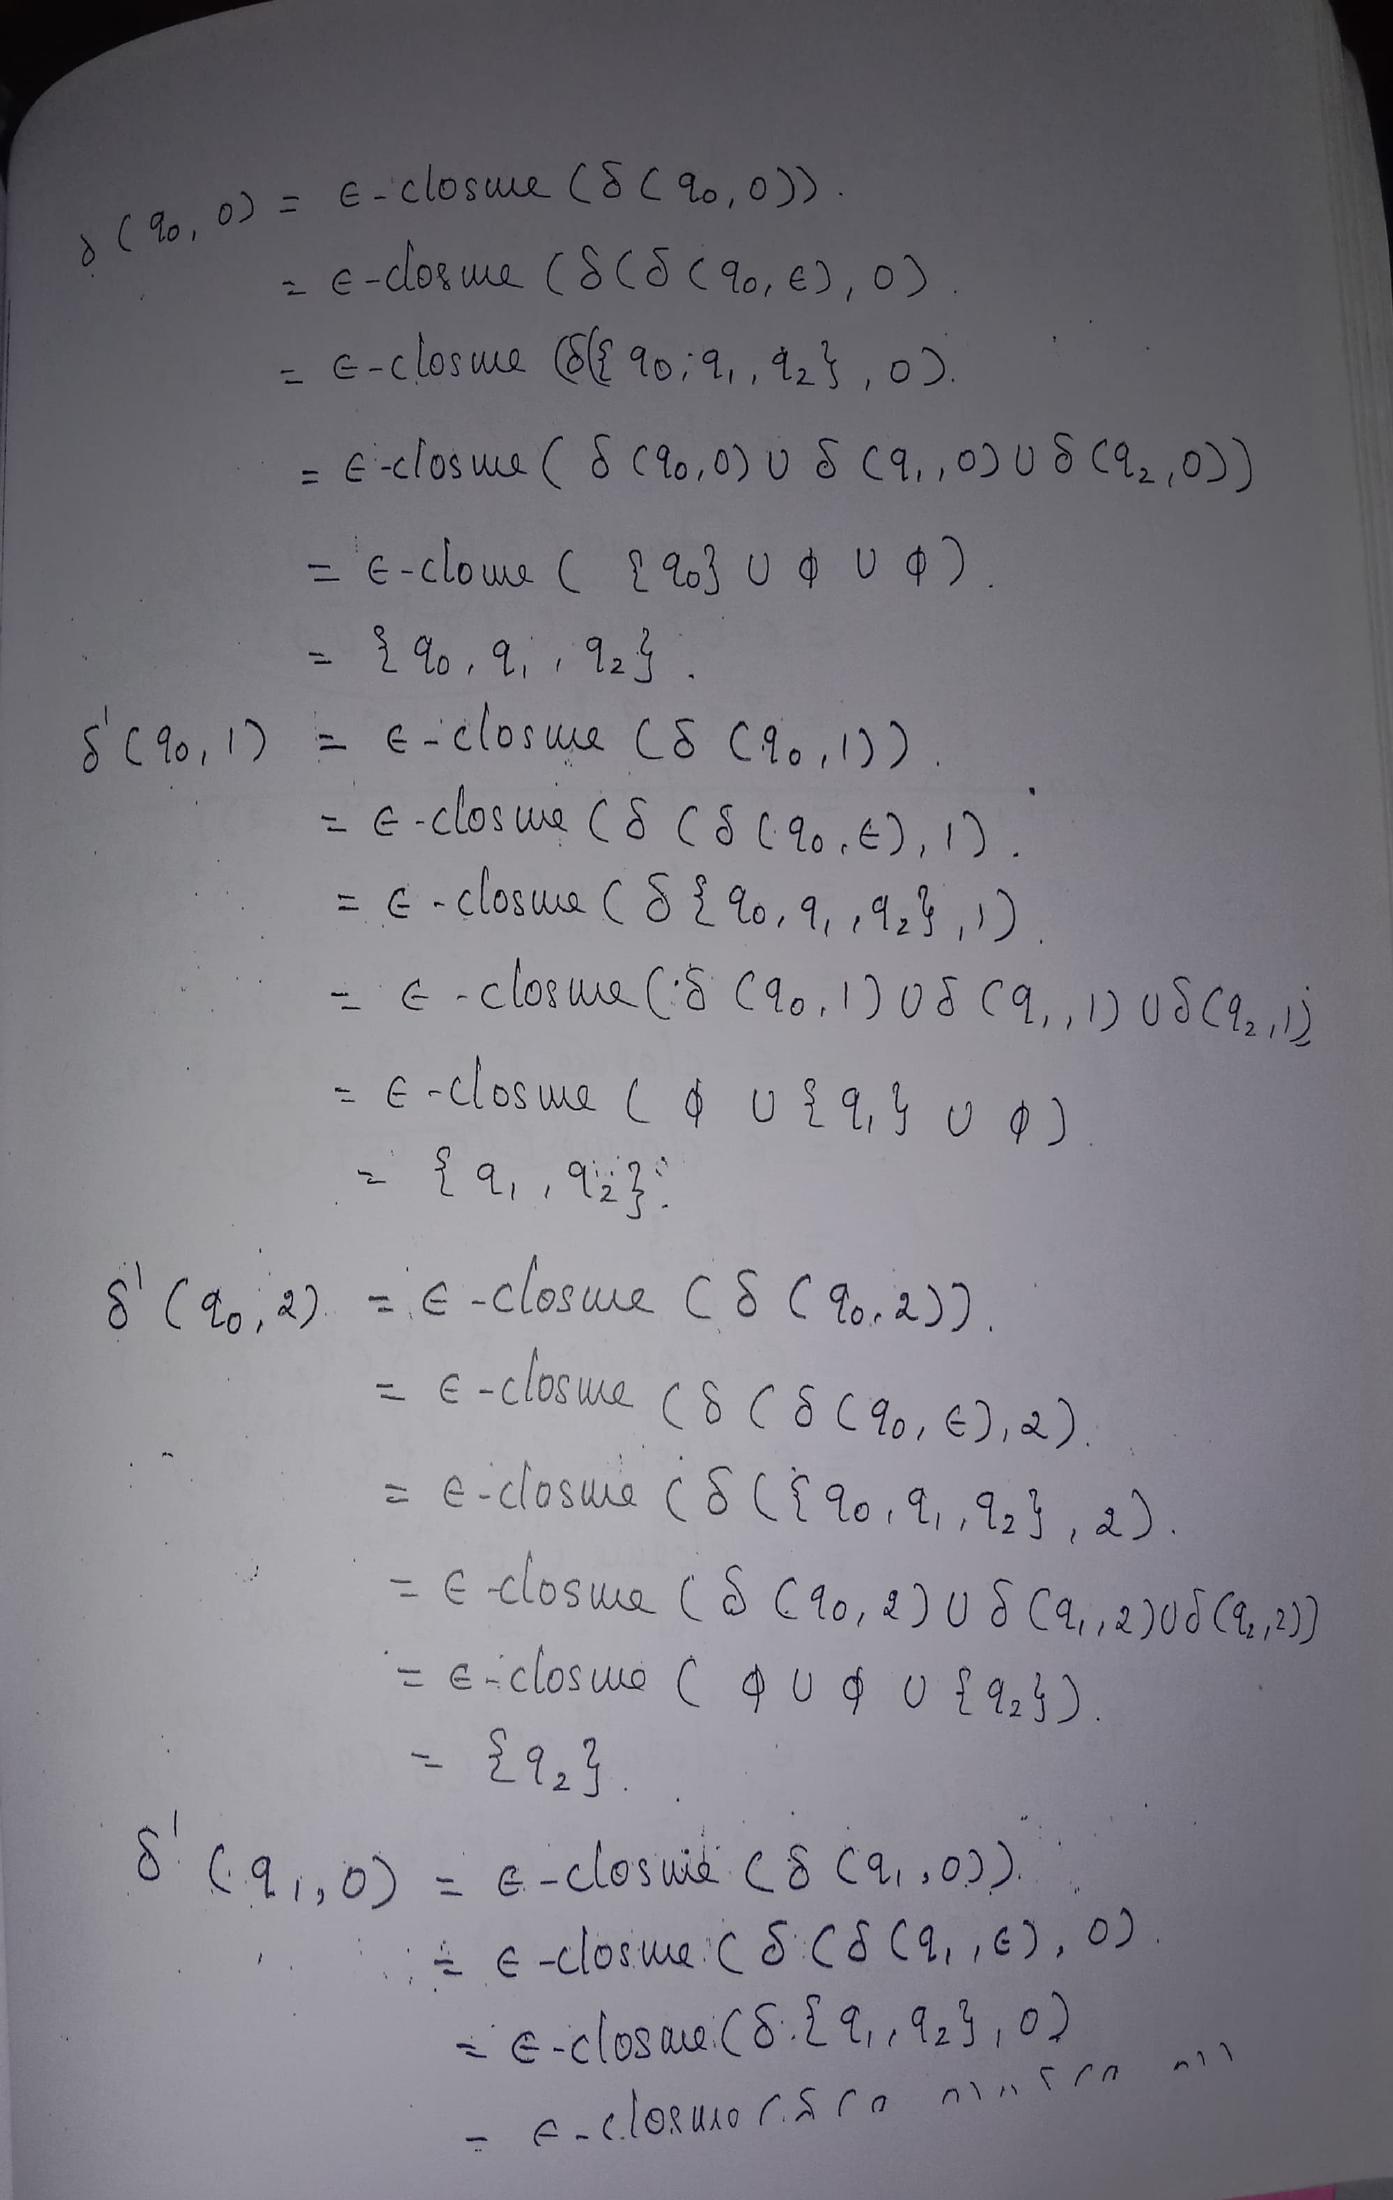 δ(q₀, 0) = ϵ-closure (δ(q₀,0)).
= ϵ-closure (δ(δ(q₀,ϵ),0).
= ϵ-closure (δ({q₀,q₁,q₂},0).
= ϵ-closure (δ(q₀,0) ∪ δ(q₁,0) ∪ δ(q₂,0))
= ϵ-cloure ( {q₀} ∪ ϕ ∪ ϕ).
= {q₀, q₁, q₂}.
δ'(q₀,1) = ϵ-closure (δ(q₀,1)).
= ϵ-closure (δ(δ(q₀,ϵ),1).
= ϵ-closure (δ{q₀,q₁,q₂},1).
= ϵ-closure (δ(q₀,1) ∪ δ(q₁,1) ∪ δ(q₂,1)
= ϵ-closure ( ϕ ∪ {q₁} ∪ ϕ).
= {q₁, q₂}.
δ'(q₀,2) = ϵ-closure (δ(q₀,2)).
= ϵ-closure (δ(δ(q₀,ϵ),2).
= ϵ-closure (δ({q₀,q₁,q₂},2).
= ϵ-closure (δ(q₀,2) ∪ δ(q₁,2) ∪ δ(q₂,2))
= ϵ-closure ( ϕ ∪ ϕ ∪ {q₂}).
= {q₂}.
δ'(q₁,0) = ϵ-closure (δ(q₁,0)).
= ϵ-closure (δ(δ(q₁,ϵ),0).
= ϵ-closure (δ{q₁,q₂},0)
= ϵ-closure (δ(